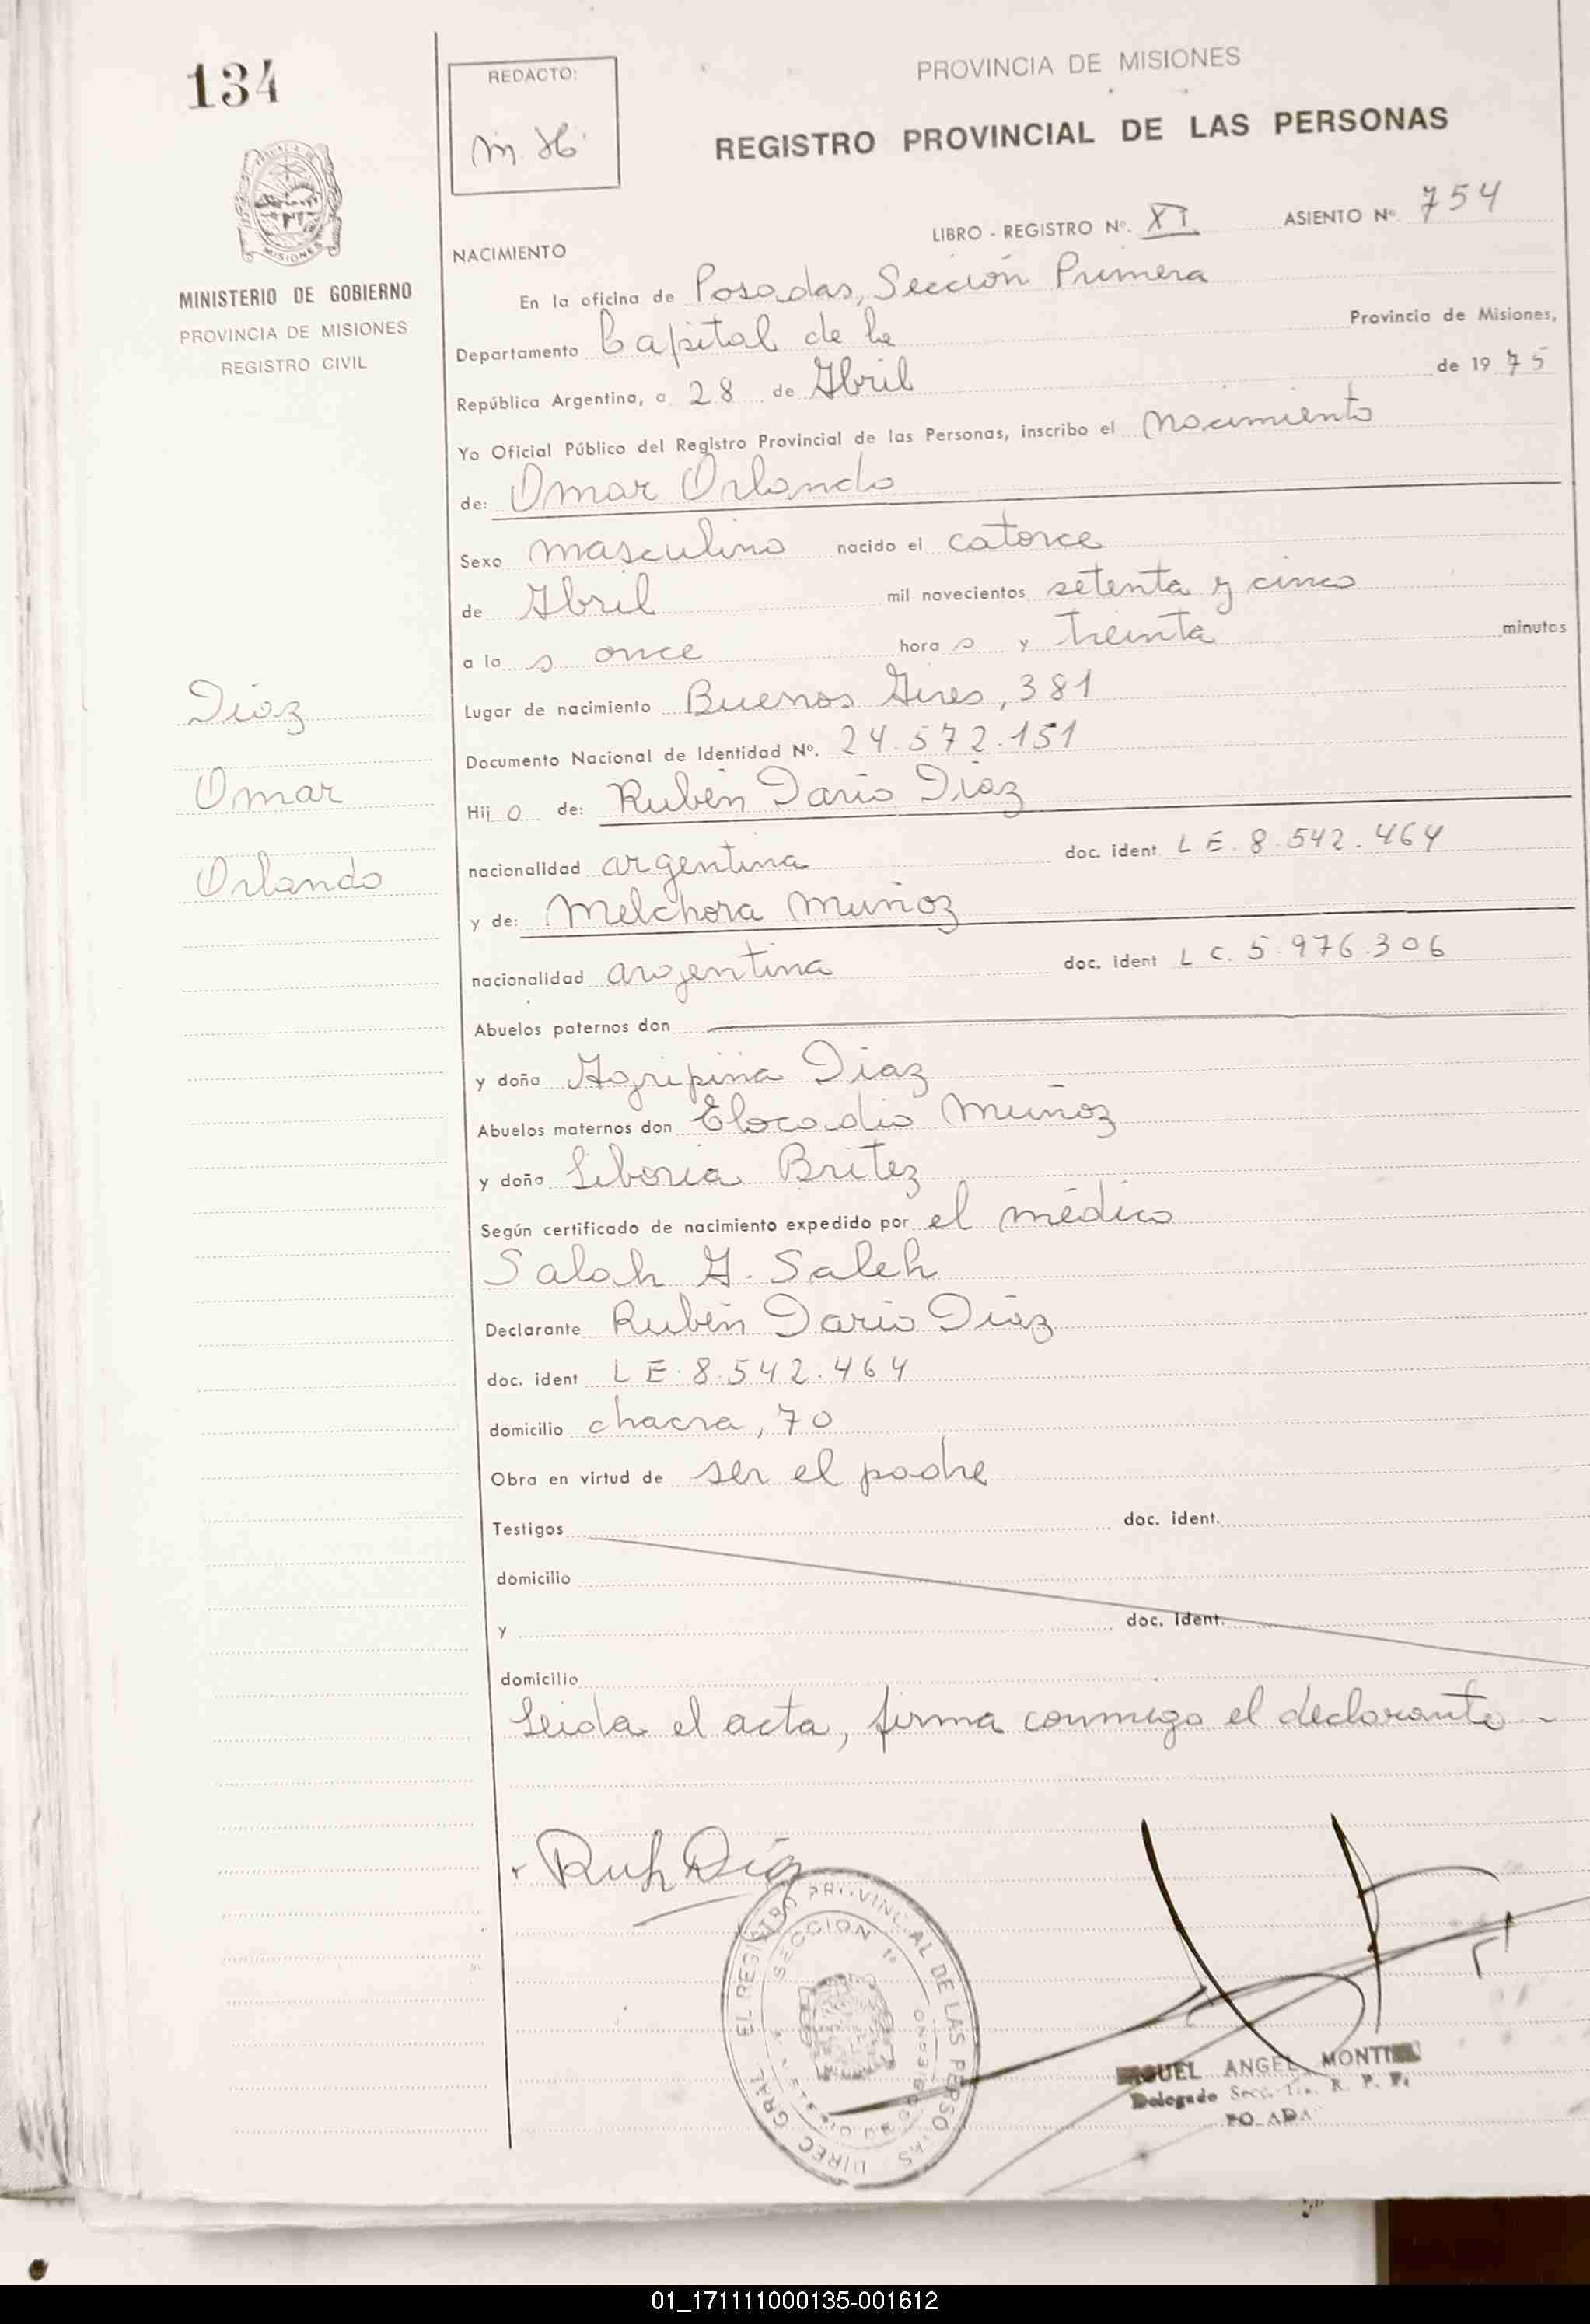 134
REDACTO:
M. H.
PROVINCIA DE MISIONES
REGISTRO PROVINCIAL DE LAS PERSONAS
MISIONES
MINISTERIO DE GOBIERNO
PROVINCIA DE MISIONES
REGISTRO CIVIL
LIBRO - REGISTRO Nº. XI ASIENTO Nº 754
NACIMIENTO
En la oficina de Posadas, Sección Primera
Departamento Capital de la Provincia de Misiones,
República Argentina, a 28 de Abril de 1975
Yo Oficial Público del Registro Provincial de las Personas, inscribo el nacimiento
de: Omar Orlando
Sexo masculino nacido el catorce
de Abril mil novecientos setenta y cinco
a la s once hora s y treinta minutos
Lugar de nacimiento Buenos Aires, 381
Documento Nacional de Identidad Nº. 24.572.151
Hij o de: Rubén Dario Diaz
nacionalidad argentina doc. ident L E. 8.542.464
y de: Melchora Muñoz
nacionalidad argentina doc. ident L C. 5.976.306
Abuelos paternos don
y doña Agripina Diaz
Abuelos maternos don Elocadio Muñoz
y doña Liboria Britez
Según certificado de nacimiento expedido por el médico
Salah A. Saleh
Declarante Rubén Dario Diaz
doc. ident L E. 8.542.464
domicilio chacra, 70
Obra en virtud de ser el padre
Testigos doc. ident.
domicilio
y doc. ident.
domicilio
Leida el acta, firma conmigo el declarante -
Diaz
Omar
Orlando
Rub Díaz
DIREC GRAL EL REGISTRO PROVINCIAL DE LAS PERSONAS
SECCION 1ª
GOBIERNO
MIGUEL ANGEL MONTIEL
Delegado Secc. 1ra. R. P. P.
POSADAS
01_171111000135-001612